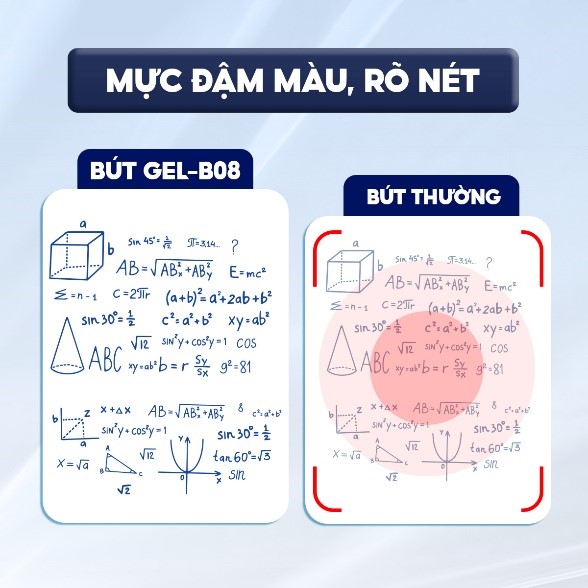 MỰC ĐẬM MÀU, RÕ NÉT
BÚT GEL-B08
a
b
sin 45° = 1/√2 π=3,14... ?
AB = √AB²ₓ + AB²ᵧ E = mc²
Σ = n - 1 C = 2πr (a+b)² = a² + 2ab + b²
sin 30° = 1/2 c² = a² + b² xy = ab²
√12 sin²y + cos²y = 1 COS
ABC xy = ab² b = r Sy/Sx g² = 81
b z x + Δx AB = √AB²ₓ + AB²ᵧ 8 c² = a² + b²
a sin²y + cos²y = 1 sin 30° = 1/2
x = √a A B C √12 Y X 0 tan 60° = √3
√2 sin
BÚT THƯỜNG
a
b
sin 45° = 1/√2 π=3,14... ?
AB = √AB²ₓ + AB²ᵧ E = mc²
Σ = n - 1 C = 2πr (a+b)² = a² + 2ab + b²
sin 30° = 1/2 c² = a² + b² xy = ab²
√12 sin²y + cos²y = 1 COS
ABC xy = ab² b = r Sy/Sx g² = 81
b z x + Δx AB = √AB²ₓ + AB²ᵧ 8 c² = a² + b²
a sin²y + cos²y = 1 sin 30° = 1/2
x = √a A B C √12 Y X 0 tan 60° = √3
√2 sin